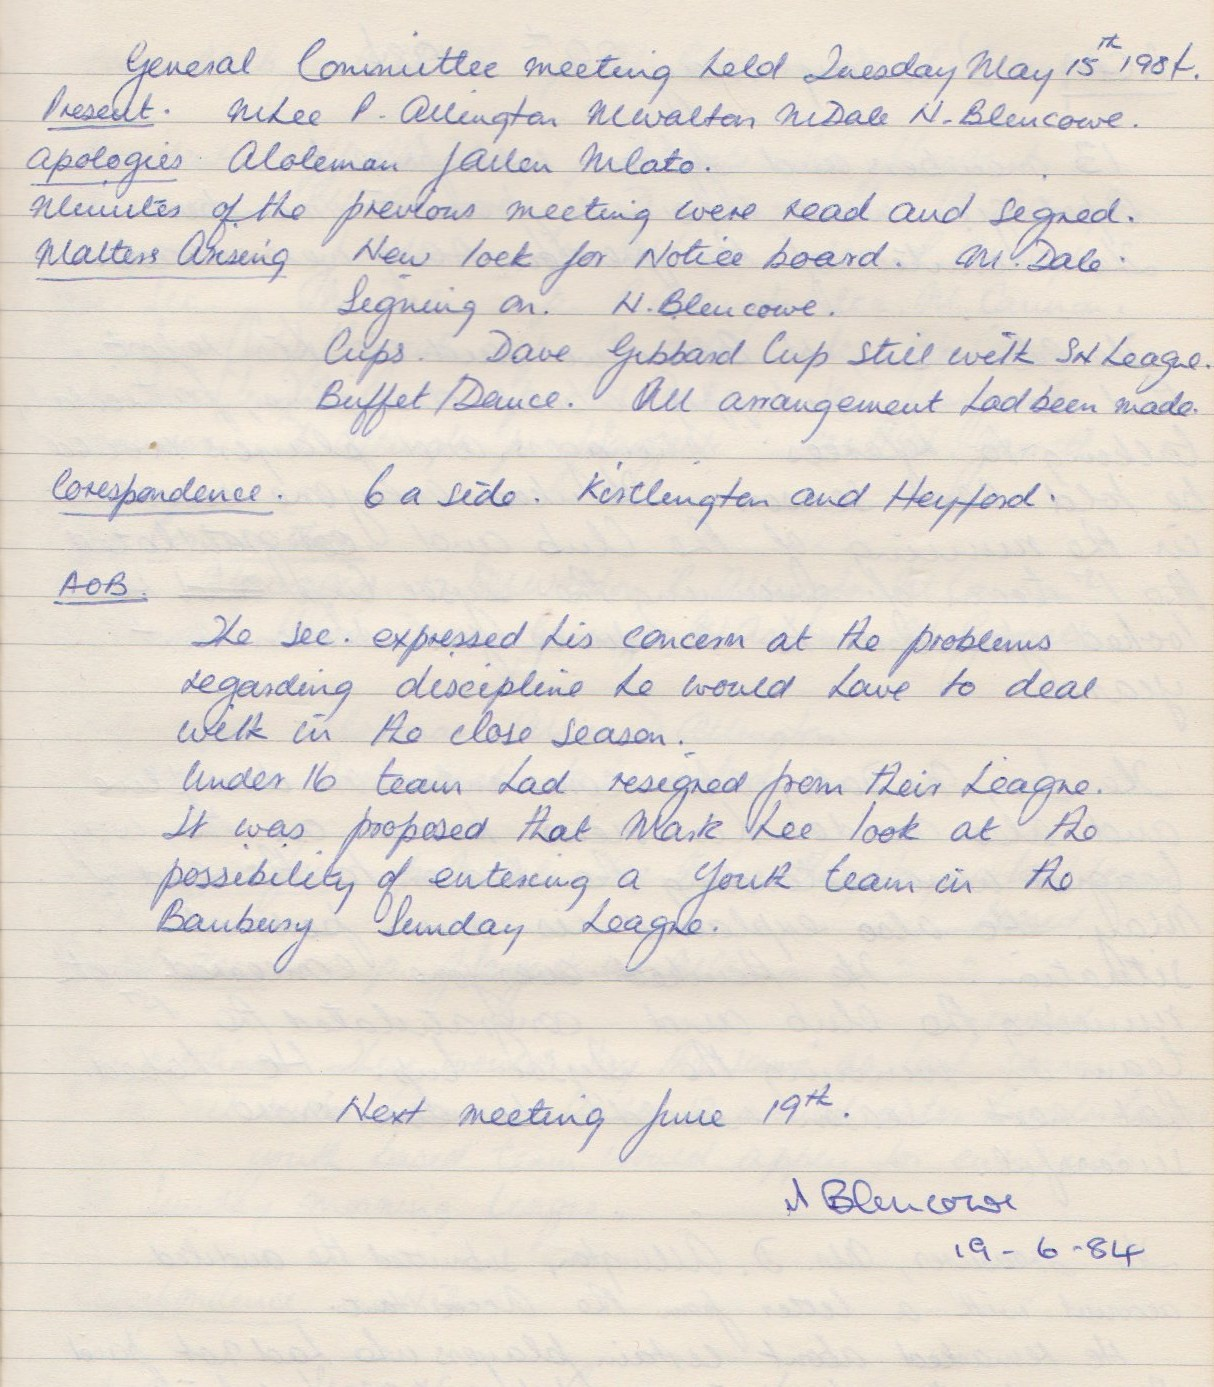 General Committee meeting held Tuesday May 15th 1984.
Present. M Lee P. Allington M Walton M Dale N. Blencowe.
Apologies A Coleman J Allen M Cato.
Minutes of the previous meeting were read and signed.
Matters Arising New lock for Notice board. M. Dale.
Signing on. N. Blencowe.
Cups. Dave Gibbard Cup still with SN League.
Buffet/Dance. All arrangement had been made.
Corespondence. 6 a side. Kirtlington and Heyford.
AOB.
The Sec. expressed his concern at the problems
regarding discipline he would have to deal
with in the close season.
Under 16 team had resigned from their League.
It was proposed that Mark Lee look at the
possibility of entering a Youth team in the
Banbury Sunday League.
Next meeting June 19th.
N Blencowe
19-6-84